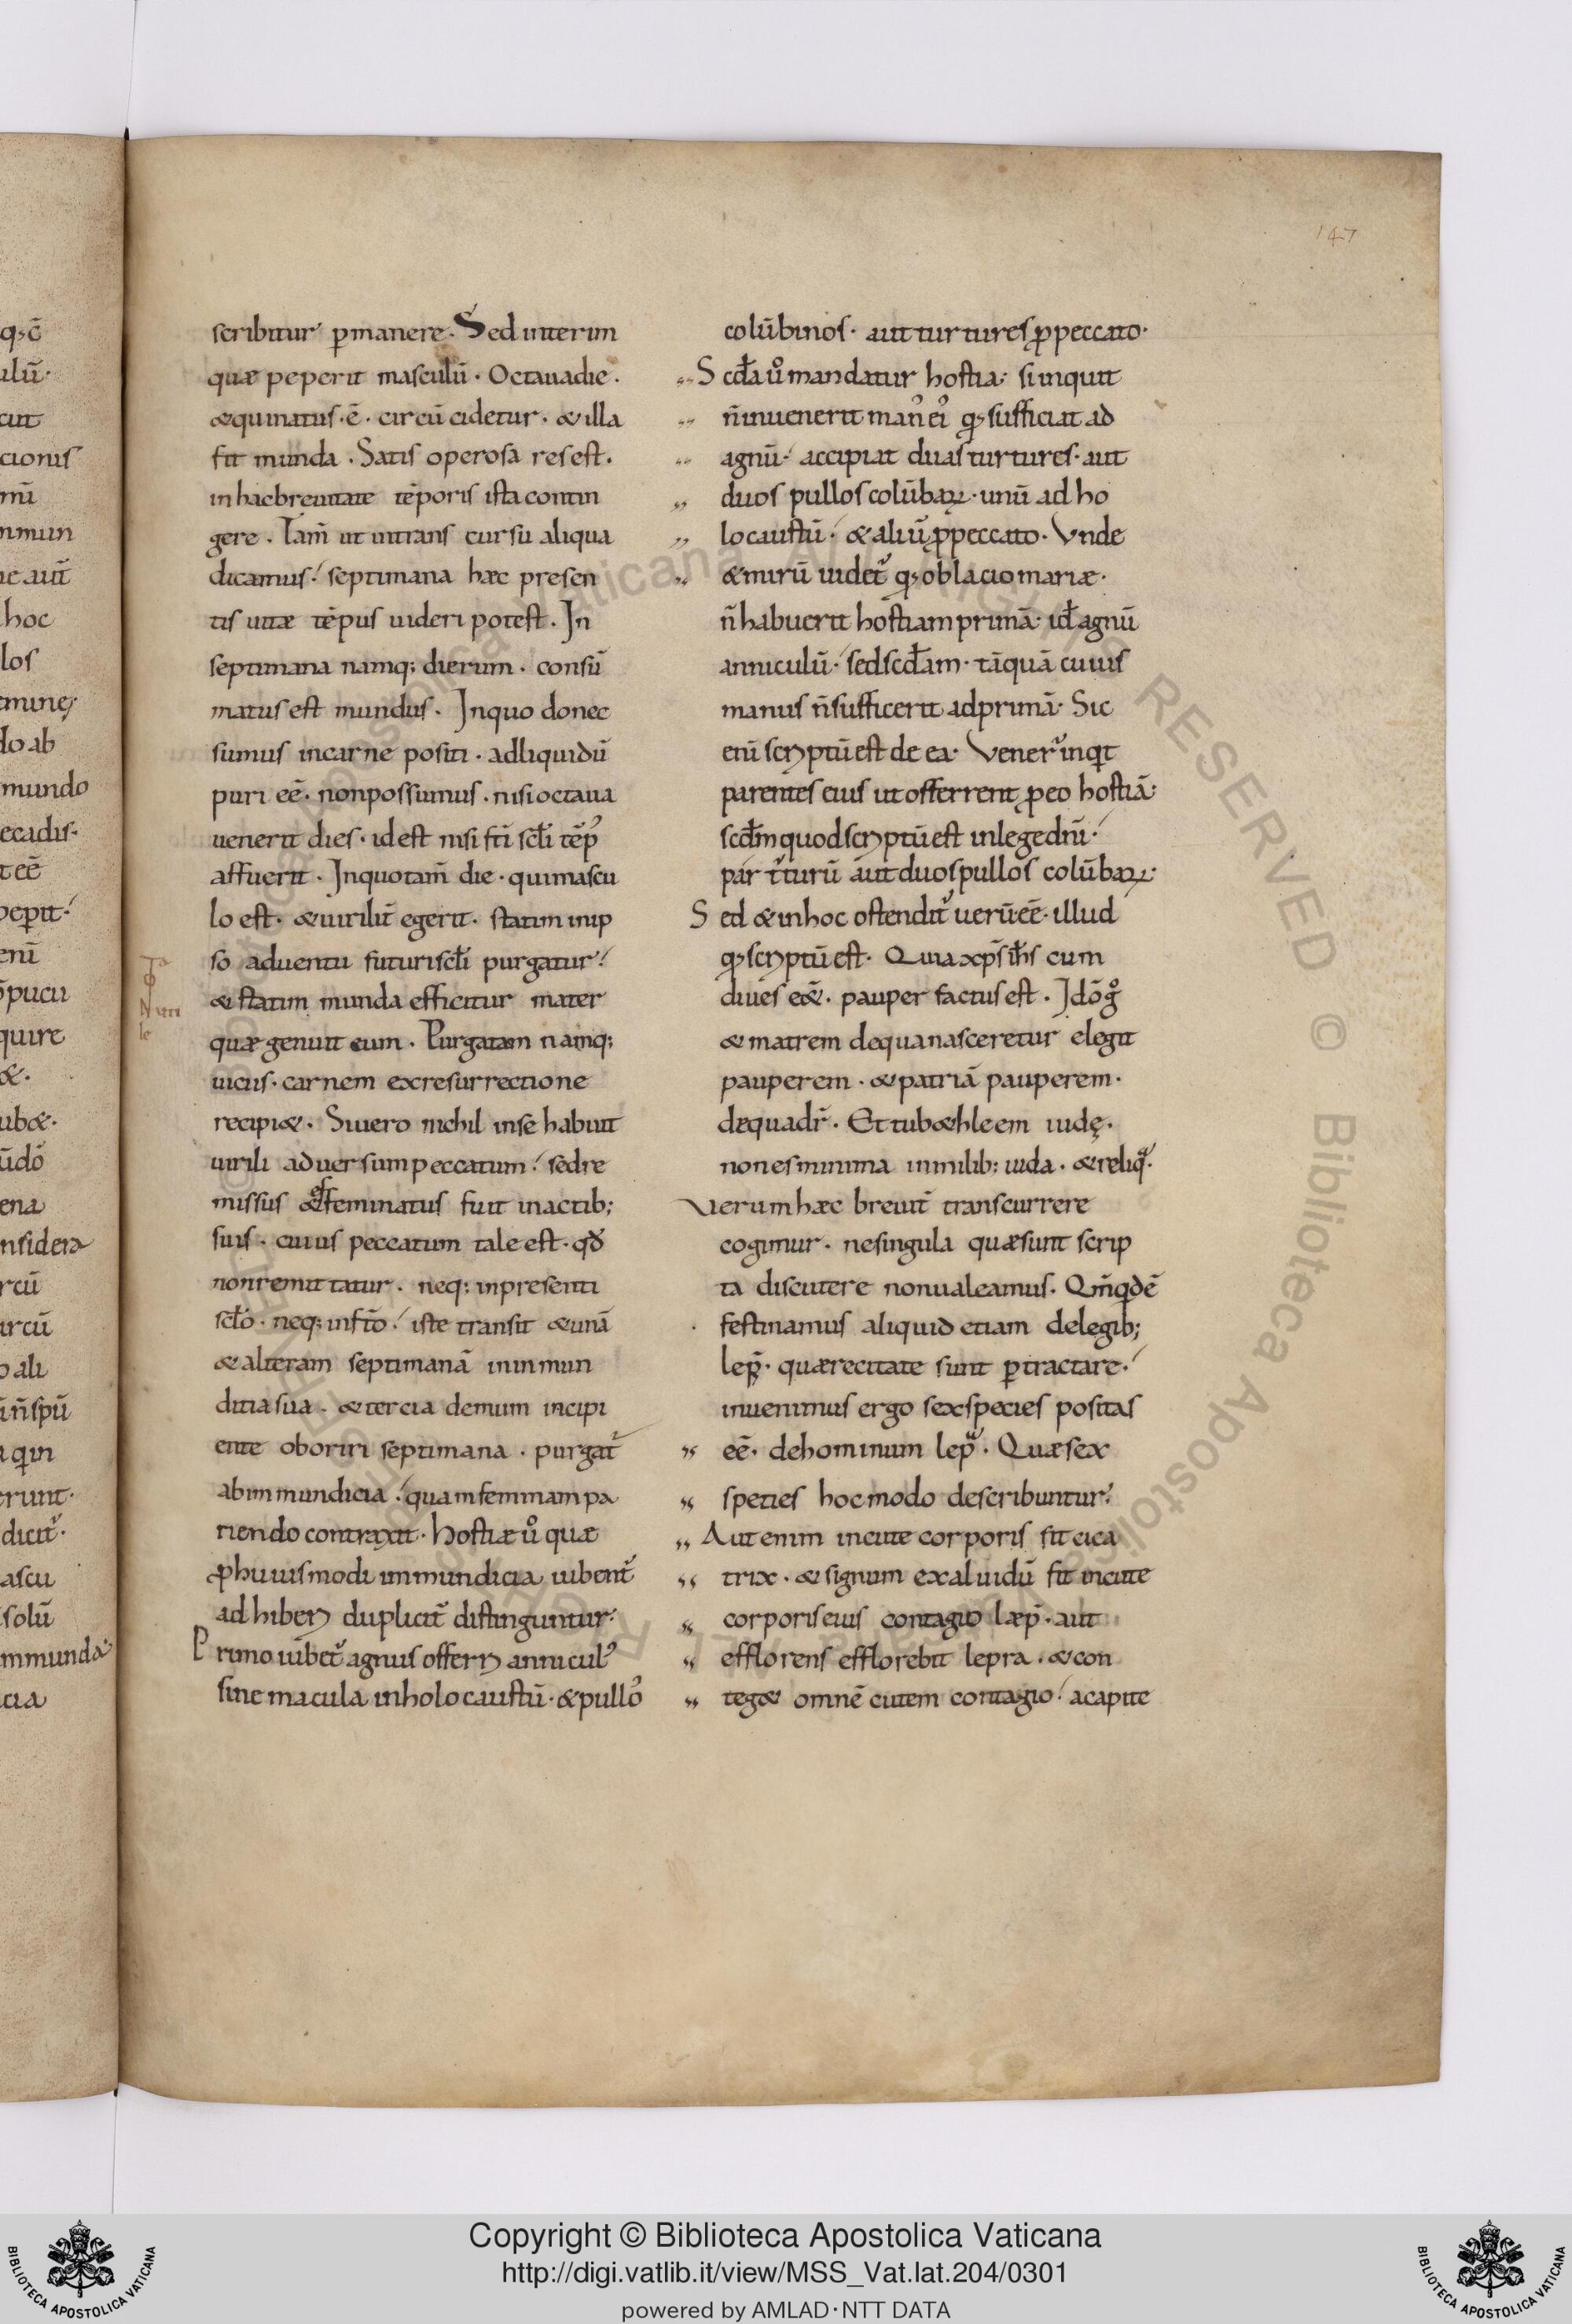 147
scribitur p̱manere. Sed interim
quæ peperit masculū. Octaua die.
& qui natus. ē. circūcidetur. & illa
fit munda. Satis operosa res est.
in hac breuitate tēporis ista contin
gere. Tam̄ ut in trans cursu aliqua
dicamus: septimana hæc presen
tis uitæ tēpus uideri potest. In
septimana namq; dierum. consū
matus est mundus. In quo donec
sumus in carne positi. ad liquidū
puri eē. non possumus. nisi octaua
uenerit dies. id est nisi fti scłi tēp'
affuerit. In quo tam̄ die. qui mascu
lo est. & uirilit̄ egerit. statim in ip
so aduentu futuri scłi purgatur:
& statim munda efficitur mater
quæ genuit eum. Purgatam namq;
uicus. carnem ex resurrectione
recipi&. Si uero nichil in se habuit
uirili aduersum peccatum: sed re
missus & effeminatus fuit in actib;
suis. cuius peccatum tale est. qđ
non remittatur. neq; in presenti
scło. neq; in ft̄o: iste transit & unā
& alteram septimanā in inmun
ditia sua. & tercia demum incipi
ente oboriri septimana. purgat̄
ab inmundicia: quam feminam pa
riendo contraxit. Hostiæ ů quæ
ꝓ huiusmodi immundicia iubent̄
adhiberi duplicit̄ distinguntur:
Primo iubet̄ agnus offerri annicul'
sine macula in holocaustū. & pullo'
colūbinos. aut turtures ꝓ peccato.
Scđa ů mandatur hostia: si inquit
n̄ inuenerit man' ei' q; sufficiat ad
agnū: accipiat duas turtures. aut
duos pullos colūbaꝝ. unū ad ho
locaustū: & aliū ꝓ peccato. Vnde
& mirū uidet̄ q; oblacio mariæ.
n̄ habuerit hostiam primā. id agnū
anniculū: sed scđam. tāquā cuius
manus n̄ sufficerit ad primā. Sic
enī scriptū est de ea. Vener̄ inqt
parentes eius ut offerrent ꝓ eo hostiā.
scđm quod scriptū est in lege dnī:
par t̄turū aut duos pullos colūbaꝝ.
Sed & in hoc ostendit̄ uerū eē. illud
q; scriptū est. Quia xp̄s ih̄s cum
diues e&̄. pauper factus est. Idō g̊
& matrem de qua nasceretur elegit
pauperem. & patriā pauperem.
de qua dr̄. Et tu b&hleem iudę.
non es minima in milib; iuda. & reliq.
Verum hæc breuit̄ transcurrere
cogimur. ne singula quæ sunt scrip
ta discutere non ualeamus. Qm̄ qdē
festinamus aliquid etiam de legib;
lep̄. quæ recitate sunt p̱tractare:
inuenimus ergo sex species positas
eē. de hominum lep̄. Quæ sex
species hoc modo describuntur:
Aut enim in cute corporis fit cica
trix. & signum ex aluidū fit in cute
corporis eius contagio læp̄. aut
efflorens efflorebit lepra. & con
teg& omnē cutem contagio: a capite
Copyright © Biblioteca Apostolica Vaticana
http://digi.vatlib.it/view/MSS_Vat.lat.204/0301
powered by AMLAD·NTT DATA
BIBLIOTECA APOSTOLICA VATICANA
BIBLIOTECA APOSTOLICA VATICANA